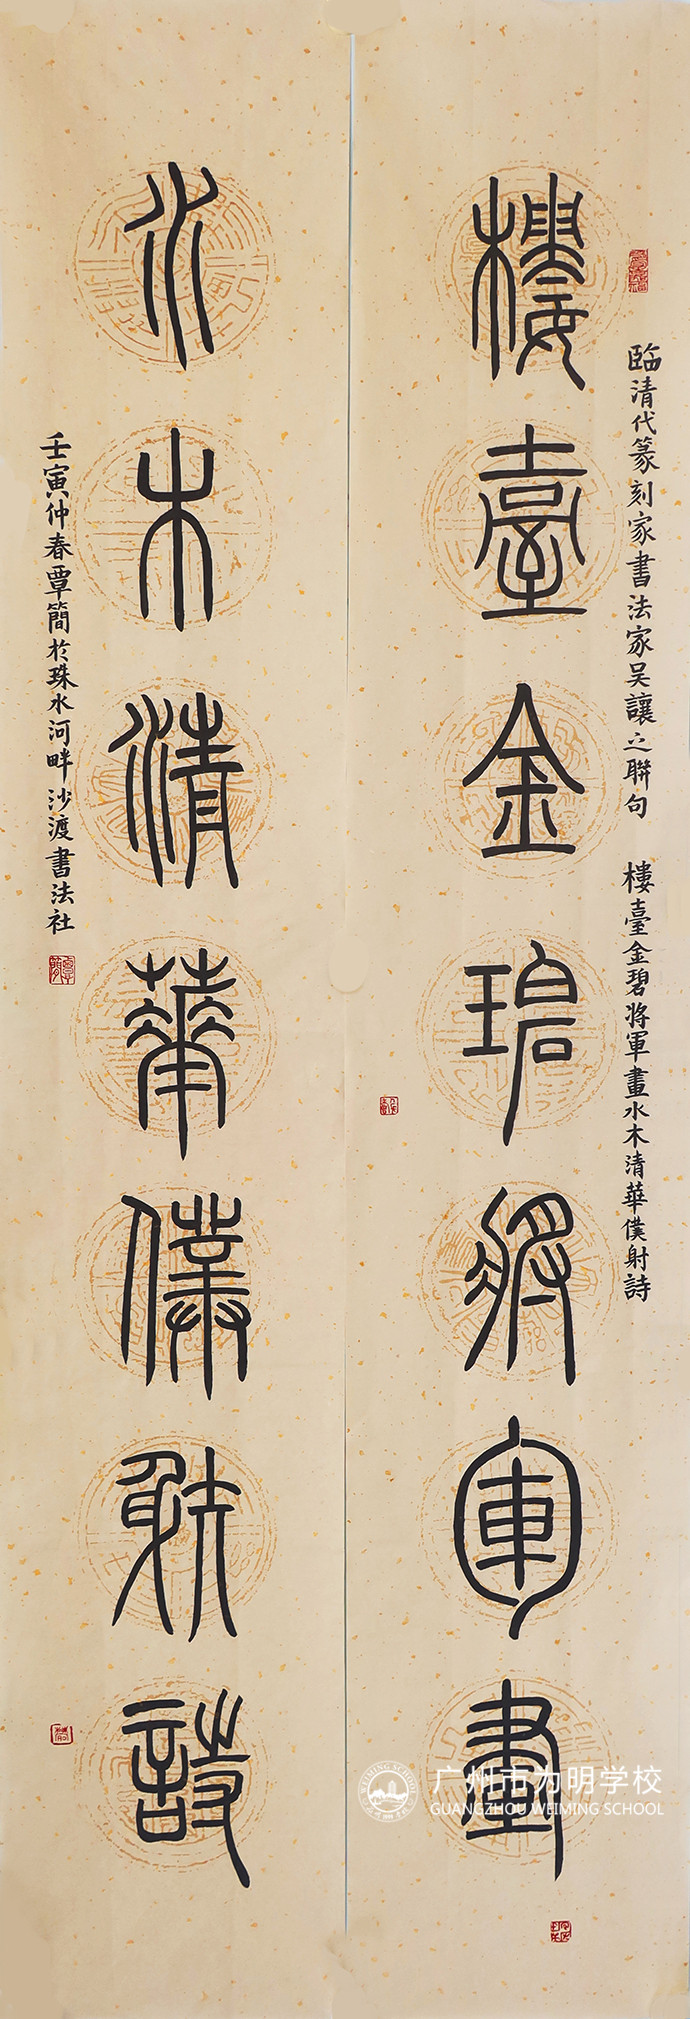 樓臺金碧將軍畫
水木清華僕射詩
臨清代篆刻家書法家吴讓之聯句　樓臺金碧將軍畫水木清華僕射詩
壬寅仲春覃簡於珠水河畔沙渡書法社
广州市为明学校
GUANGZHOU WEIMING SCHOOL
WEIMING SCHOOL